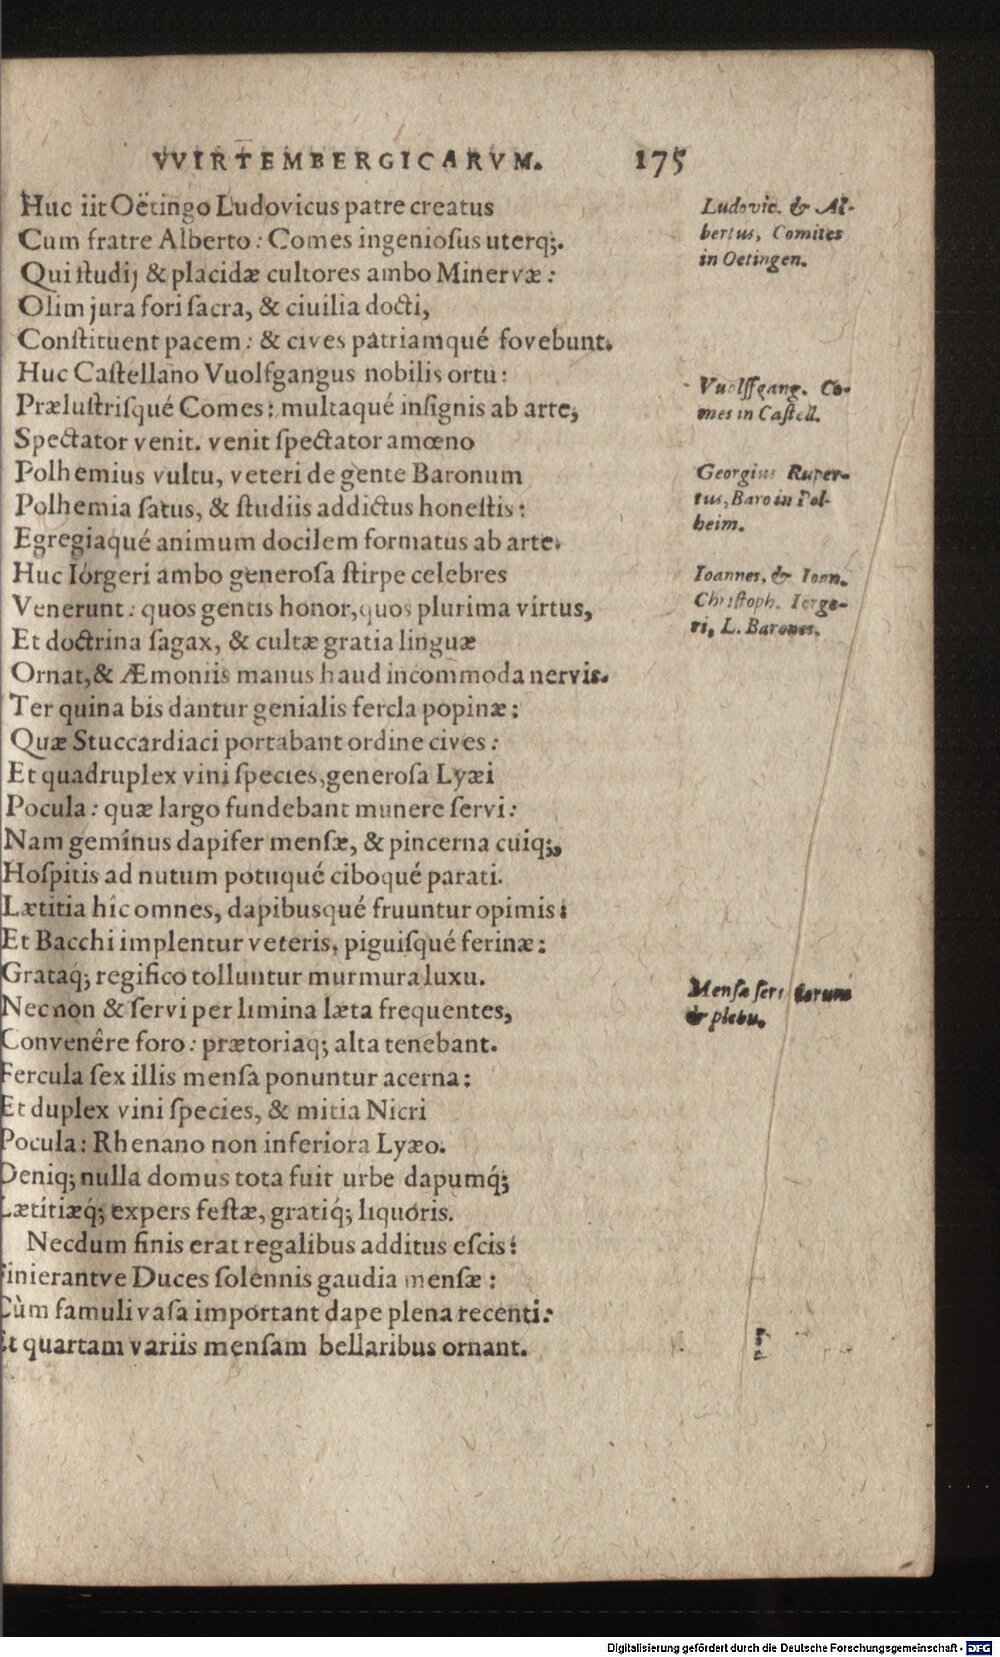 VVIRTEMBERGICARVM. 175
Huc iit Oëtingo Ludovicus patre creatus
Cum fratre Alberto: Comes ingeniosus uterq;.
Qui studij & placidæ cultores ambo Minervæ:
Olim jura fori sacra, & ciuilia docti,
Constituent pacem: & cives patriamqué fovebunt.
Huc Castellano Vuolfgangus nobilis ortu:
Prælustrisqué Comes: multaqué insignis ab arte,
Spectator venit. venit spectator amœno
Polhemius vultu, veteri de gente Baronum
Polhemia satus, & studiis addictus honestis:
Egregiaqué animum docilem formatus ab arte.
Huc Iórgeri ambo generosa stirpe celebres
Venerunt: quos gentis honor, quos plurima virtus,
Et doctrina sagax, & cultæ gratia linguæ
Ornat, & Æmoniis manus haud incommoda nervis.
Ter quina bis dantur genialis fercla popinæ:
Quæ Stuccardiaci portabant ordine cives:
Et quadruplex vini species, generosa Lyæi
Pocula: quæ largo fundebant munere servi:
Nam gemínus dapifer mensæ, & pincerna cuiq;,
Hospitis ad nutum potuqué ciboqué parati.
Lætitia hîc omnes, dapibusqué fruuntur opimis:
Et Bacchi implentur veteris, piguisqué ferinæ:
Grataq́; regifico tolluntur murmura luxu.
Nec non & servi per limina læta frequentes,
Convenêre foro: prætoriaq; alta tenebant.
Fercula sex illis mensa ponuntur acerna:
Et duplex vini species, & mitia Nicri
Pocula: Rhenano non inferiora Lyæo.
Deniq; nulla domus tota fuit urbe dapumq́;
Lætitiæq́; expers festæ, gratiq́; liquoris.
Necdum finis erat regalibus additus escis:
Finierantve Duces solennis gaudia mensæ:
Cùm famuli vasa important dape plena recenti:
Et quartam variis mensam bellaribus ornant.
Ludovic. & Al-
bertus, Comites
in Oetingen.
Vuolffgang. Co-
mes in Castell.
Georgius Ruper-
tus, Baro in Pol-
heim.
Ioannes, & Ioan.
Christoph. Ierge-
ri, L. Barones.
Mensæ servorum
& plebis.
Digitalisierung gefördert durch die Deutsche Forschungsgemeinschaft - DFG